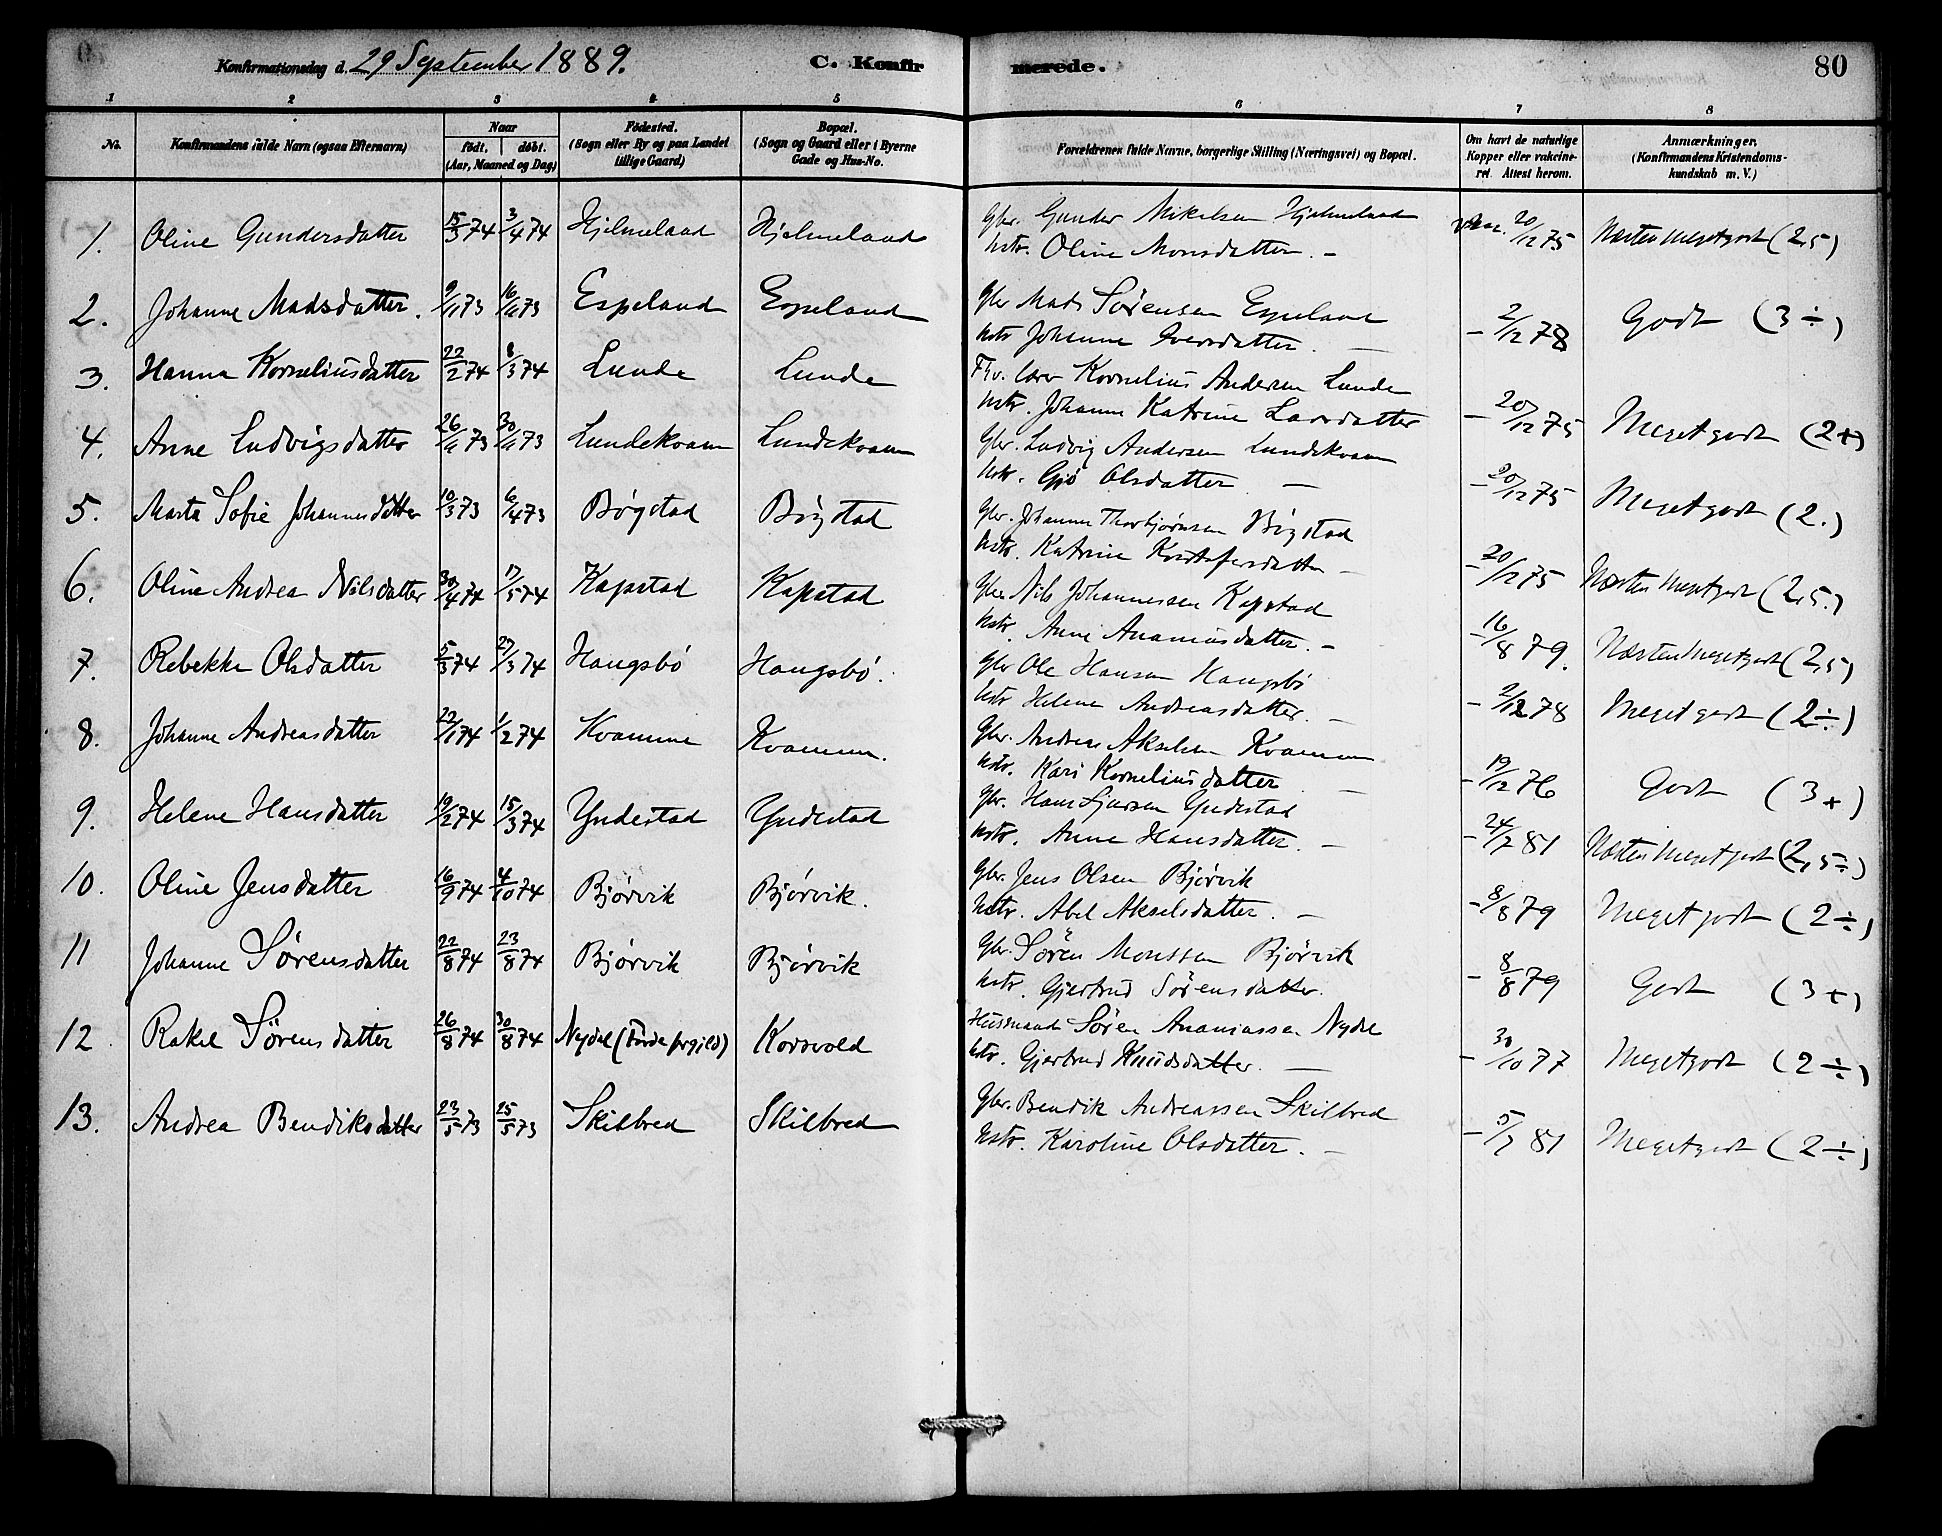 Konfirmationsdag d. 29 September 1889. C. Konfirmerede. 80
1 2 3 4 5 6 7 8
No. Konfirmandens fulde Navn (ogsaa Efternavn) Naar født, døbt. (Aar, Maaned og Dag) Fødested. (Sogn eller By og paa Landet tillige Gaard) Bopæl. (Sogn og Gaard eller i Byerne Gade og Hus-No. Forældrenes fulde Navne, borgerlige Stilling (Næringsvei) og Bopæl. Om havt de naturlige Kopper eller vakcineret. Attest herom. Anmærkninger. (Konfirmandens Kristendomskundskab m. V.)
1. Oline Gundersdatter 15/3 74 3/4 74 Hjelmeland Hjelmeland Gbr. Gunder Mikelsen Hjelmeland vakc. 20/12 75 Næsten Megetgodt (2,5)
Hstr. Oline Monsdatter. –
2. Johanne Madsdatter. 9/11 73 16/11 73 Espeland Espeland Gbr Mads Sørensen Espeland – 2/12 78 Godt (3 ÷)
Hstr Johanne Iversdatter. –
3. Hanna Korneliusdatter 22/2 74 8/3 74 Lunde Lunde Fhv. lærer Kornelius Andersen Lunde
Hstr. Johanne Katrine Larsdatter – 20/12 75 Megetgodt (2+)
4. Anne Ludvigsdatter 26/11 73 30/11 73 Lundekvam Lundekvam Gbr. Ludvig Andersen Lundekvam
Hstr. Gjø Olsdatter – – 20/12 75 Megetgodt (2.)
5. Marta Sofie Johannesdatter 10/3 73 6/4 73 Bøgstad Bøgstad Gbr. Johannes Thorbjørnsen Bøgstad
Hstr. Katrine Kristofersdatter – – 20/12 75 Næsten Megetgodt (2,5.)
6. Oline Andrea Nilsdatter 30/4 74 17/5 74 Kapstad Kapstad Gbr. Nils Johannessen Kapstad
Hstr. Anne Ananiasdatter. – – 16/8 79. Næsten Megetgodt (2,5)
7. Rebekka Olsdatter 5/3 74 27/3 74 Haugsbø Haugsbø. Gbr Ole Hansen Haugsbø
Hstr Helene Andreasdatter. – – 2/12 78 Megetgodt (2 ÷)
8. Johanne Andreasdatter 22/1 74 1/2 74 Kvamme Kvamme. Gbr. Andreas Akselsen Kvamme
Hstr. Kari Korneliusdatter – – 19/12 76 Godt (3 +)
9. Helene Hansdatter 19/2 74 15/3 74 Yndestad Yndestad Gbr. Hans Sjursen Yndestad
Hstr. Anne Hansdatter. – – 24/7 81 Næsten Megetgodt (2,5 ÷)
10. Oline Jensdatter 16/9 74 4/10 74 Bjørvik Bjørvik. Gbr. Jens Olsen Bjørvik
Hstr. Abel Akselsdatter. – – 8/8 79 Megetgodt (2 ÷)
11 Johanne Sørensdatter 22/8 74 23/8 74 Bjørvik Bjørvik Gbr. Søren Monssen Bjørvik
Hstr. Gjertrud Sørensdatter. – 8/8 79 Godt (3 +)
12 Rakel Sørensdatter 26/8 74 30/8 74 Nydal (Førde prgjld) Korsvold Husmand Søren Ananiassen Nydal
Hstr. Gjertrud Knudsdatter. – – 30/10 77 Megetgodt (2 ÷)
13. Andrea Bendiksdatter 23/5 73 25/5 73 Skilbred Skilbred Gbr. Bendik Andreassen Skilbred
Hstr. Karoline Olsdatter. – – 5/7 81 Megetgodt (2 ÷)